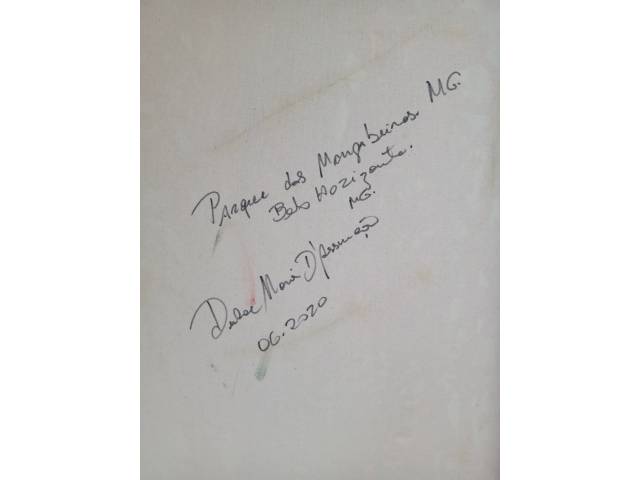 Parque das Mangabeiras. MG.
Belo Horizonte.
MG.
Dulce Maria D'Assunção
06.2020